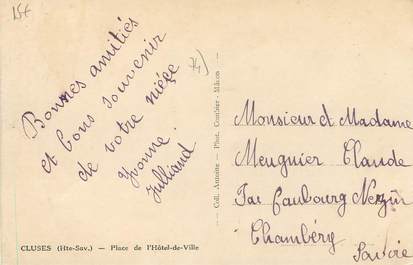 Bonnes amitiés
et bons souvenir
de votre nièce
Yvonne
Julliand
74)
CLUSES (Hte-Sav.) — Place de l'Hôtel-de-Ville
Coll. Annoite — Phot. Combier - Mâcon
Monsieur et Madame
Meugnier Claude
Faubourg
Chambéry
Savoie